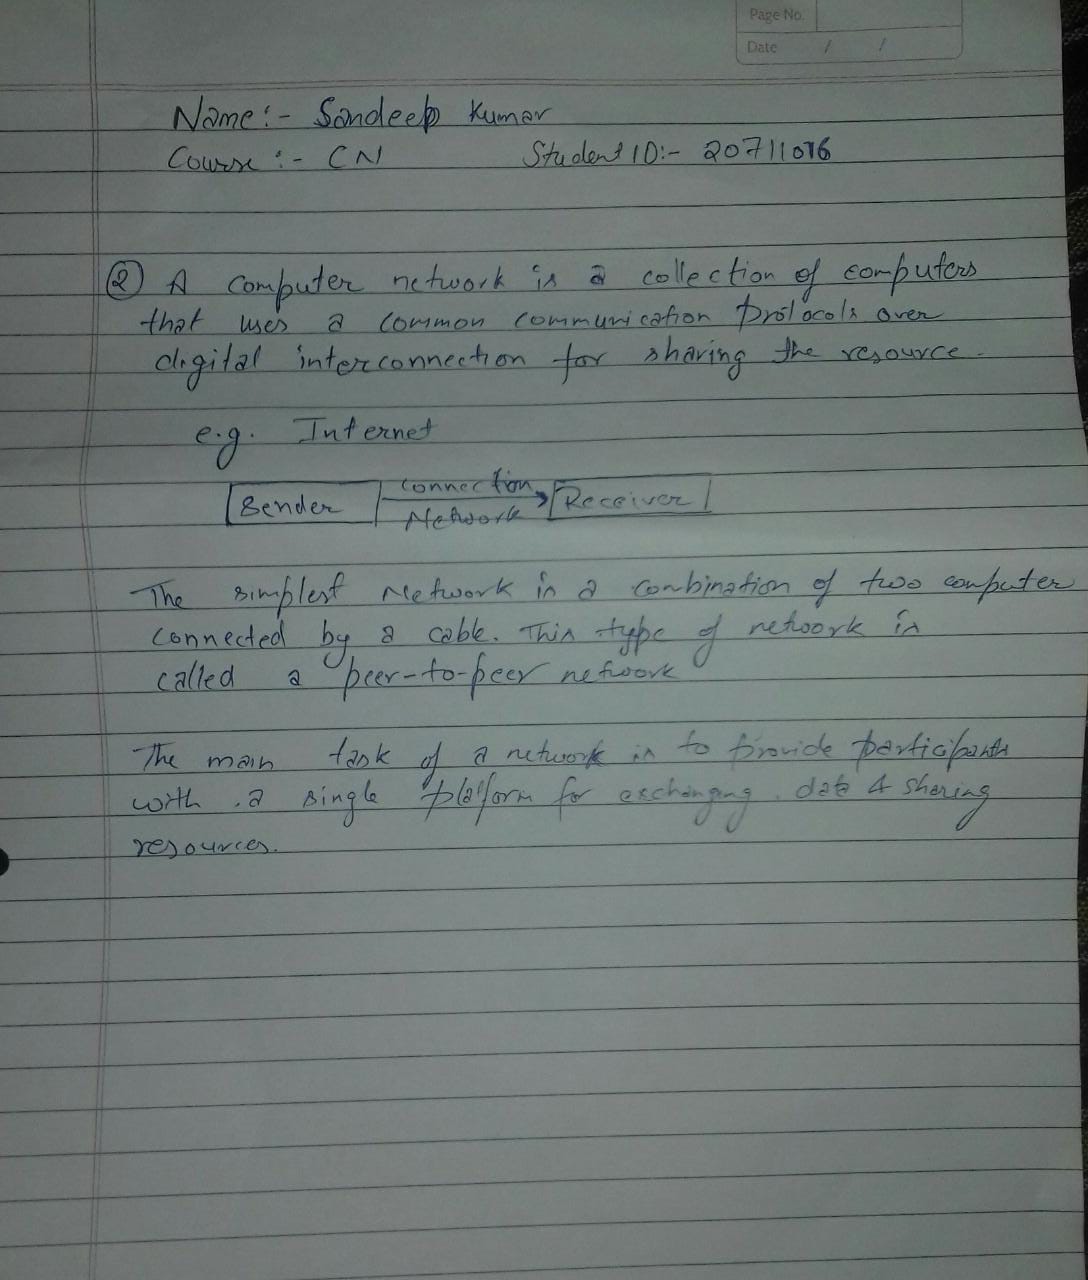 Page No.
Date / /
Name:- Sandeep Kumar
Course:- CN Student ID:- 20711016
② A computer network is a collection of computers
that uses a common communication protocols over
digital interconnection for sharing the resource.
e.g. Internet
Sender Connection Network Receiver
The simplest Network is a combination of two computer
connected by a cable. This type of network is
called a peer-to-peer network
The main task of a network is to provide participants
with a single platform for exchanging data & sharing
resources.